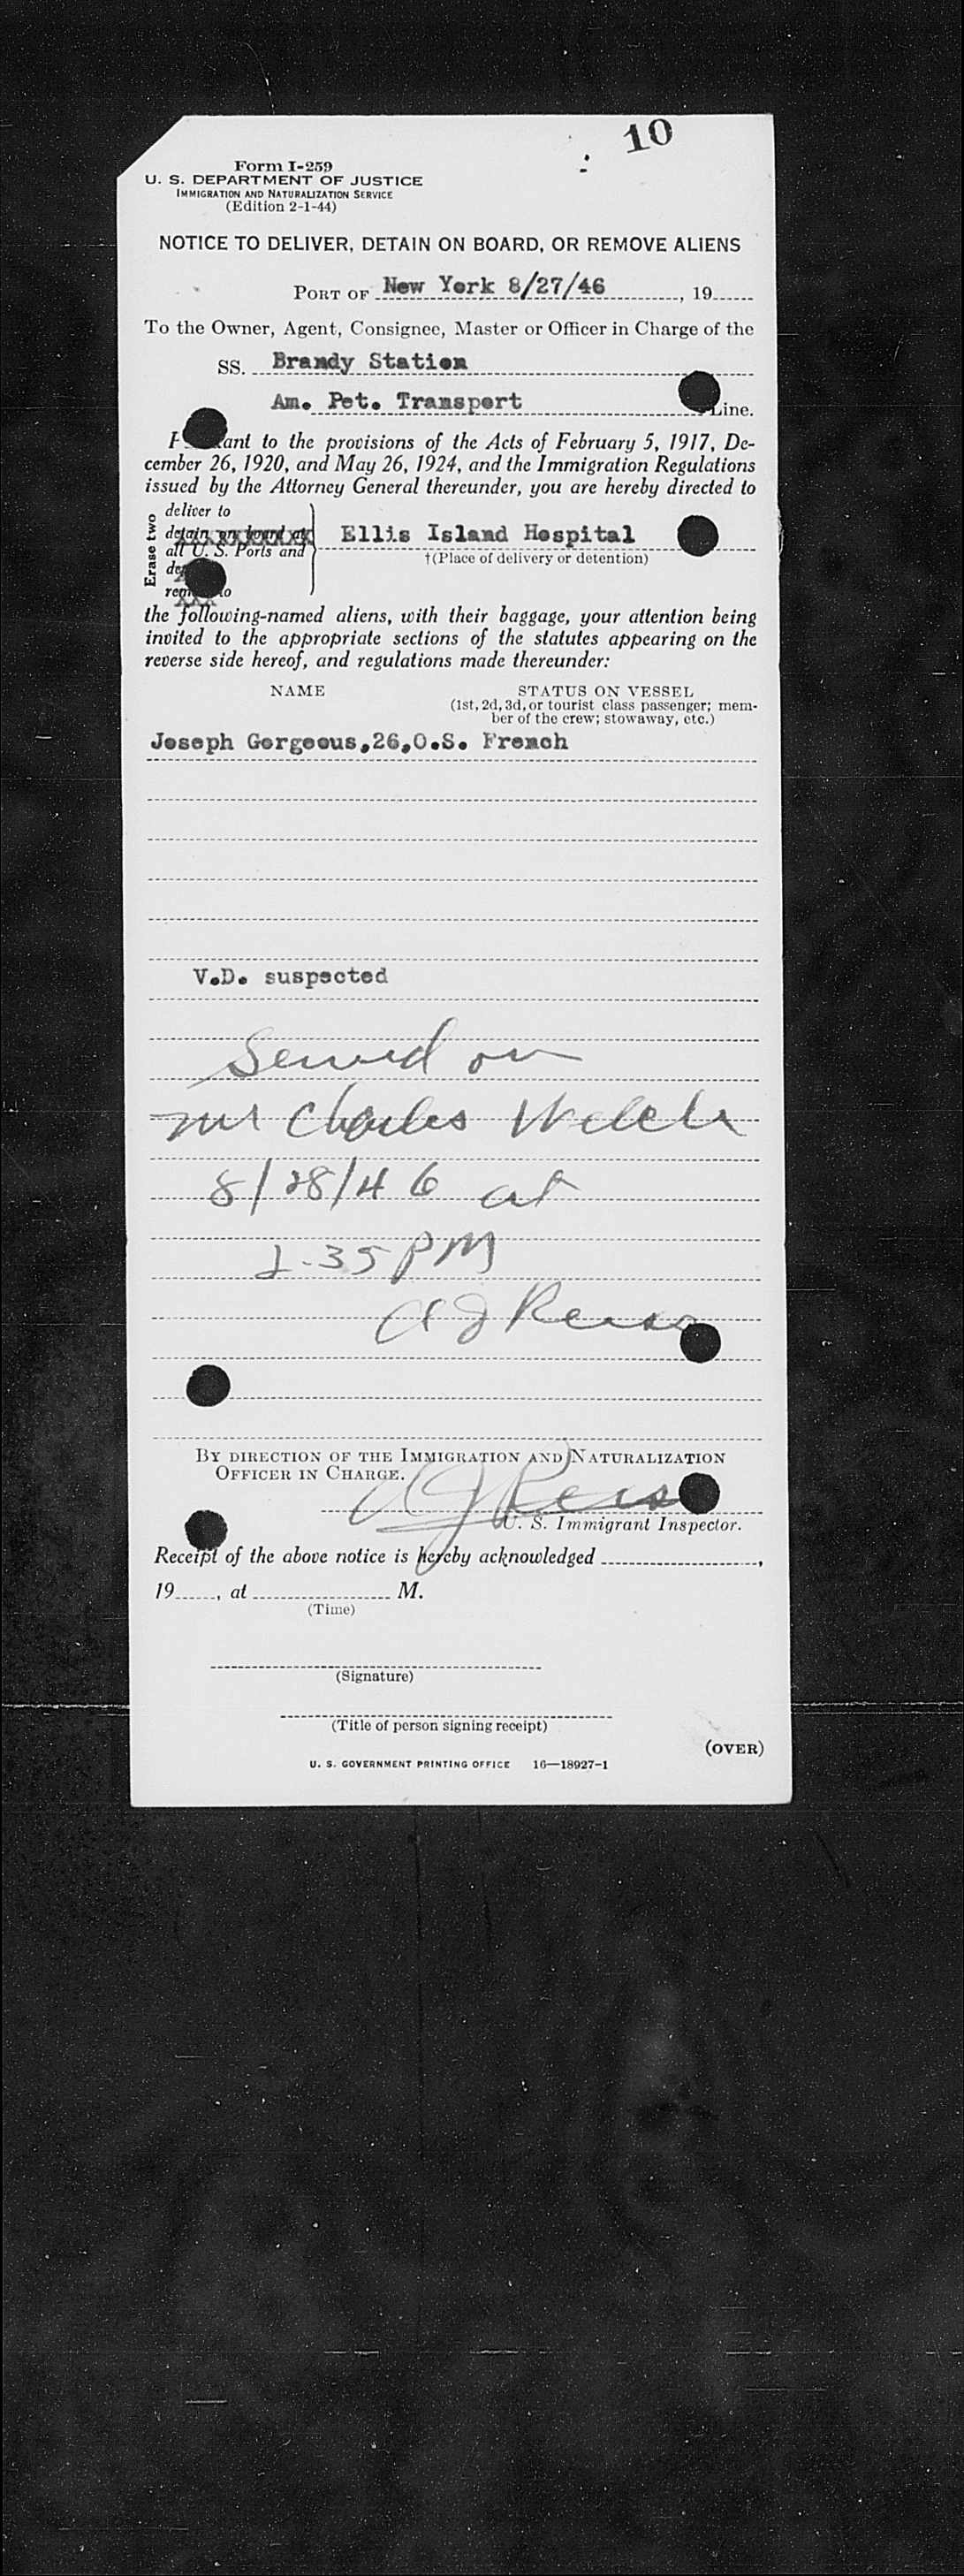 10
Form I-259
U. S. DEPARTMENT OF JUSTICE
IMMIGRATION AND NATURALIZATION SERVICE
(Edition 2-1-44)
NOTICE TO DELIVER, DETAIN ON BOARD, OR REMOVE ALIENS
PORT OF New York 8/27/46, 19
To the Owner, Agent, Consignee, Master or Officer in Charge of the
SS. Brandy Station
Am. Pet. Transport Line.
ant to the provisions of the Acts of February 5, 1917, De-
cember 26, 1920, and May 26, 1924, and the Immigration Regulations
issued by the Attorney General thereunder, you are hereby directed to
Erase two
deliver to
detain on board at
all U. S. Ports and
Ellis Island Hospital
†(Place of delivery or detention)
the following-named aliens, with their baggage, your attention being
invited to the appropriate sections of the statutes appearing on the
reverse side hereof, and regulations made thereunder:
NAME STATUS ON VESSEL
(1st, 2d, 3d, or tourist class passenger; mem-
ber of the crew; stowaway, etc.)
Joseph Gorgeous,26,O.S. French
V.D. suspected
Served on
Mr Charles Welch
8/28/46 at
35 PM
A J Reiss
BY DIRECTION OF THE IMMIGRATION AND NATURALIZATION
OFFICER IN CHARGE.
A J Reiss
U. S. Immigrant Inspector.
Receipt of the above notice is hereby acknowledged ,
19 , at M.
(Time)
(Signature)
(Title of person signing receipt)
(OVER)
U. S. GOVERNMENT PRINTING OFFICE 16—18927-1